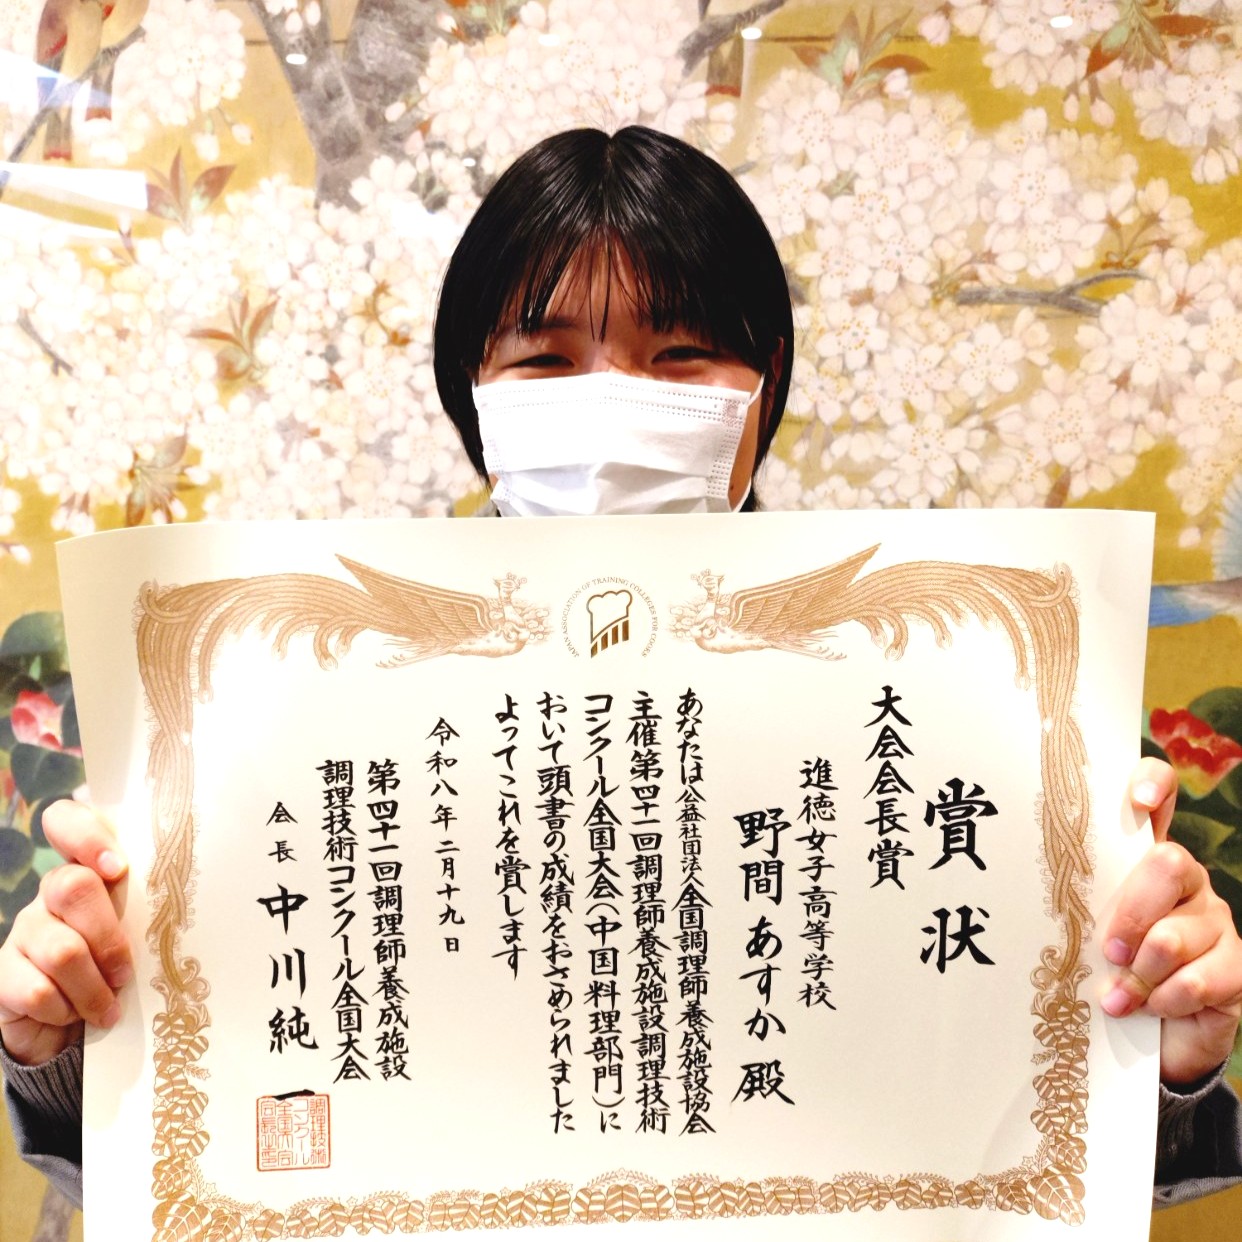 JAPAN ASSOCIATION OF TRAINING COLLEGES FOR COOKS
賞状
大会会長賞
進徳女子高等学校
野間あすか殿
あなたは公益社団法人全国調理師養成施設協会
主催第四十一回調理師養成施設調理技術
コンクール全国大会(中国料理部門)に
おいて頭書の成績をおさめられました
よってこれを賞します
令和八年二月十九日
第四十一回調理師養成施設
調理技術コンクール全国大会
会長 中川純一